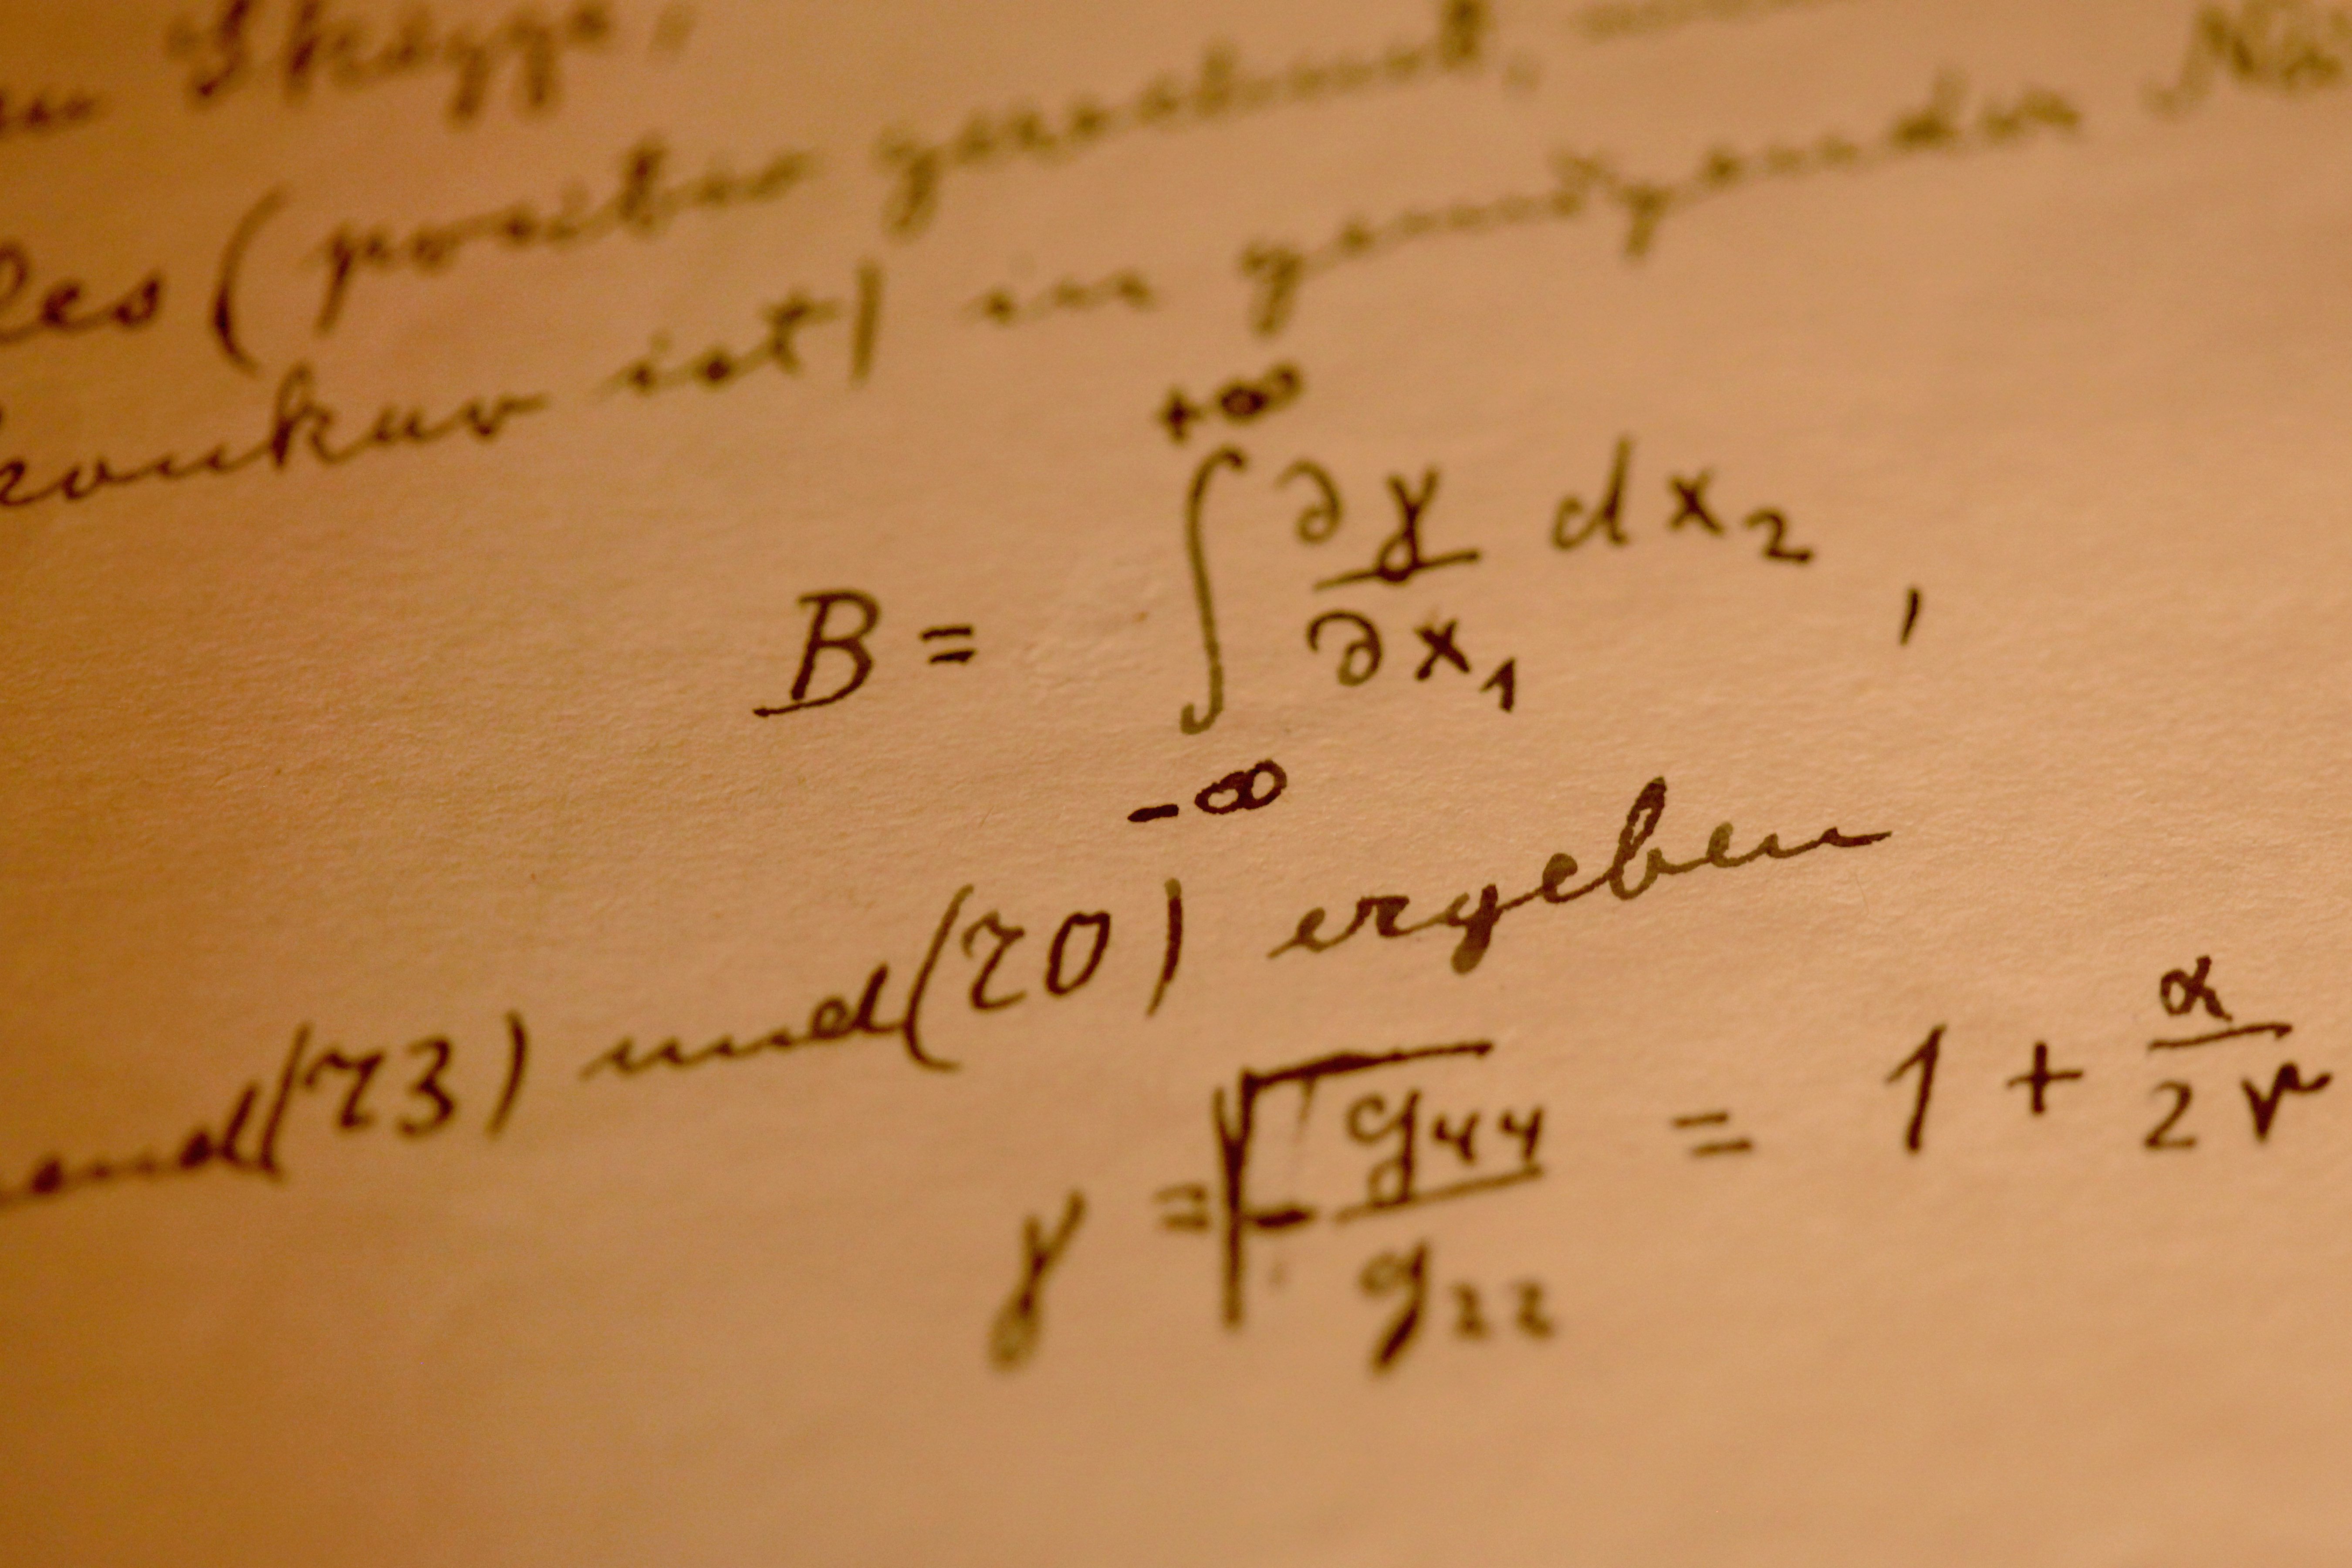 Skizze,
les (positiv gerechnet,
konkav ist) in genügender Nä
B = ∫_{-∞}^{+∞} ∂γ/∂x₁ dx₂ ,
(73) und (70) ergeben
γ = √(- g₄₄/g₂₂) = 1 + α/2r